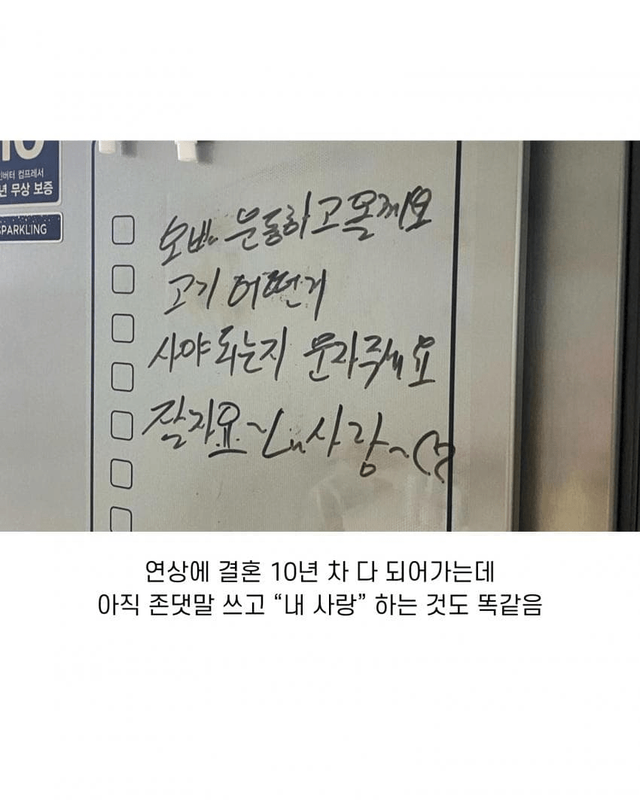 버터 컴프레서
년 무상 보증
SPARKLING
오빠 운동하고 올께요
고기 어떤거
사야되는지 문자주세요
잘자요~ 내사랑~♡
연상에 결혼 10년 차 다 되어가는데
아직 존댓말 쓰고 “내 사랑” 하는 것도 똑같음